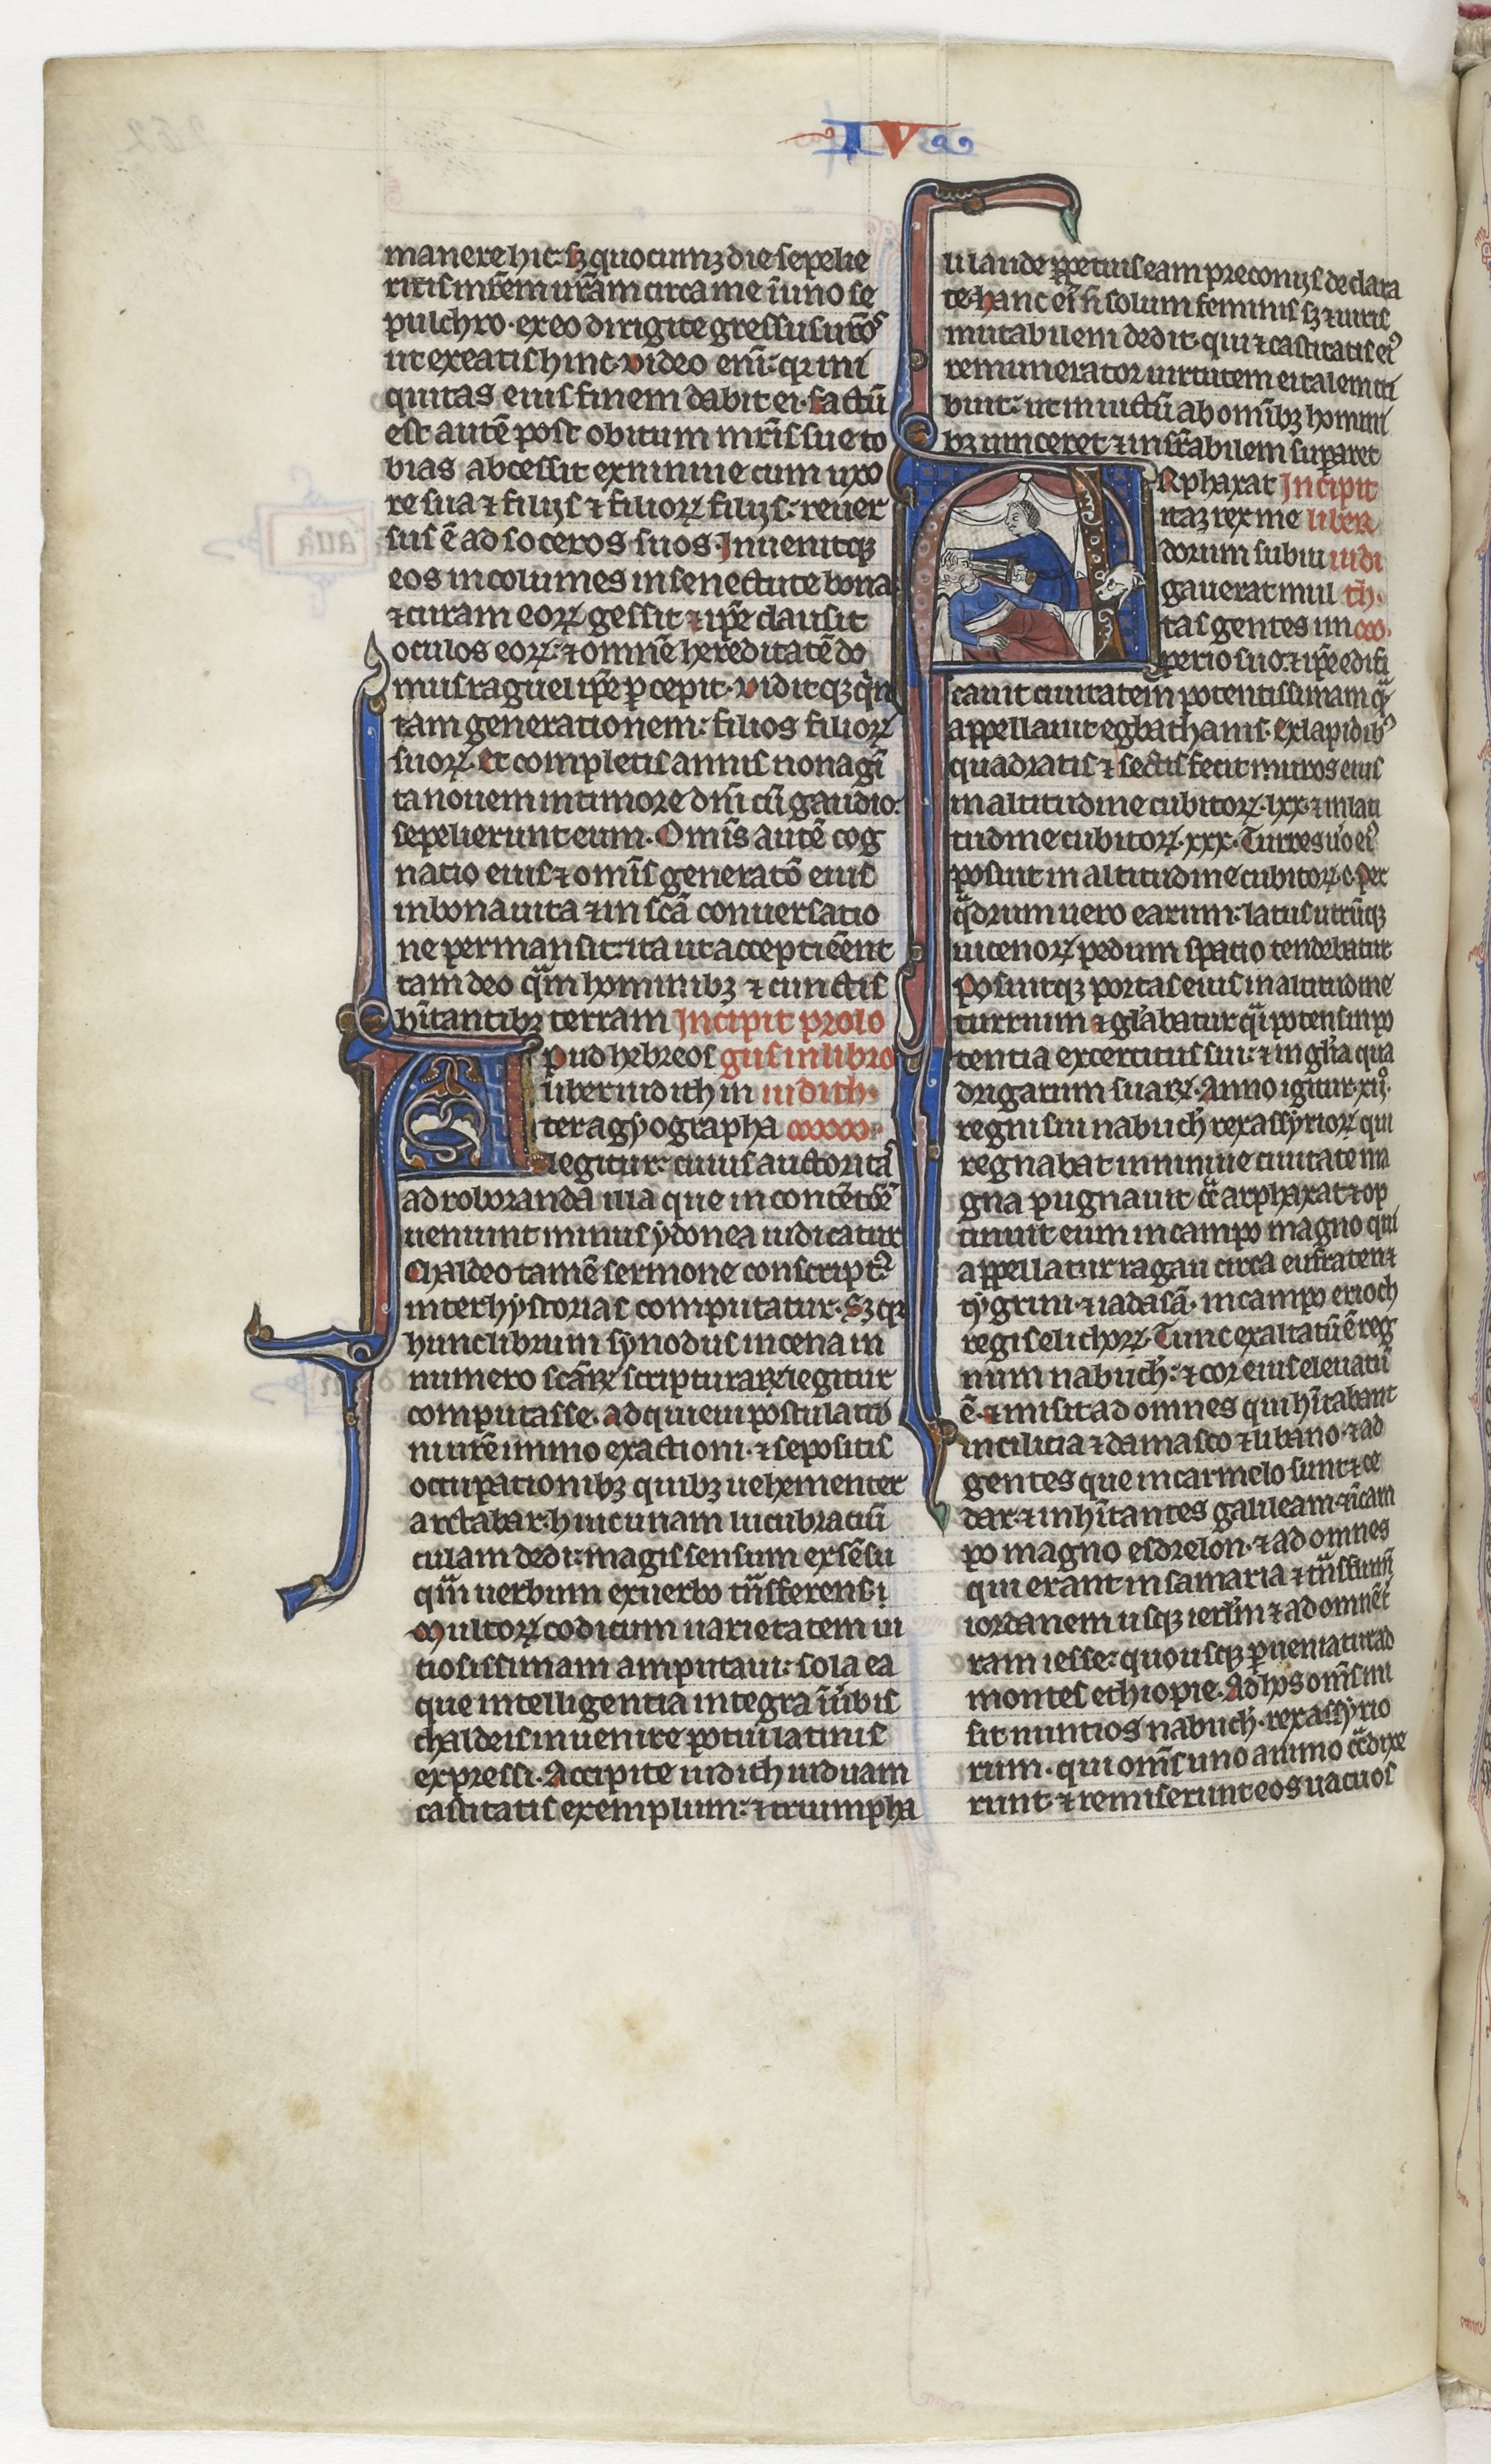 IV
manere hic: sꝫ quocumqꝫ die sepelie
ritis mr̄em ur̄am circa me ī uno se
pulchro· ex eo dirigite gressus ur̄os
ut exeatis hinc· video eni᷒· qꝛ ini
quitas eius finem dabit ei· factū
est autē post obitum mr̄is sue to
bias abcessit ex niniue cum uxo
re sua ⁊ filiis ⁊ filioꝝ filiis: reuer
sus ē ad soceros suos· Inuenitqꝫ
eos incolumes in senectute bona
⁊ curam eoꝝ gessit ⁊ ip̄e clausit
oculos eoꝝ: ⁊ omnē hereditatē do
mus raguel ip̄e ꝑcepit· vidit qꝫ qin
tam generationem: filios filioꝝ
suoꝝ· Et completis annis nonagī
ta nouem in timore dn̄i cū gaudio·
sepelierunt eum· Omīs autē cog
natio eius ⁊ omīs generatō eius
in bona uita ⁊ in sc̄a conuersatio
ne permansit: ita ut accepti eēnt
tam deo qm̄ hominibꝫ ⁊ cunctis
hītantibꝫ terram Incipit prolo
Apud hebreos gus in libro
liber iudith in iudith·
ter agyographa
legitur: cuius auctorita᷒
ad roboranda illa que in contētōē
ueniunt minus ydonea iudicatur
Chaldeo tamē sermone conscript᷒
inter hystorias computatur· Sꝫ qꝛ
hunc librum synodus incena in
numero sc̄aꝝ scripturaꝝ legitur
computasse· adquieui postulatio
ni ur̄e immo exactioni· ⁊ sepositis
occupationibꝫ quibꝫ uehementer
arctabar· huic unam lucubratiū
culam dedi: magis sensum ex sēsu
qm̄ uerbum ex uerbo tn̄sferens·
Multoꝝ codicum uarietatem ui
tiosissimam amputaui: sola ea
que intelligentia integra ī uerbis
chaldeis inuenire potui latinis
expressi· Accipite iudith uiduam
castitatis exemplum: ⁊ triumpha
li laude ꝑpetuis eam preconiis declara
te· hanc ei᷒ n̄ solum feminis sꝫ ⁊ uiris
imitabilem dedit· qui ⁊ castitatis ei᷒
remunerator uirtutem ei talem tri
buit: ut inuictū ab omībꝫ homini
bꝫ uinceret ⁊ insr̄abilem suꝑaret
Arphaxat Incipit
itaqꝫ rex me liber
dorum subiu iudi
gauerat mul th·
tas gentes im
perio suo· ⁊ ip̄e edifi
cauit ciuitatem potentissimam qm̄
appellauit egbathanis· Ex lapidibꝰ
quadratis ⁊ sectis fecit muros eius
in altitudine cubitoꝝ· lxx· ⁊ in lati
tudine cubitoꝝ· xxx· Turres uo ei᷒
posuit in altitudine cubitoꝝ· c· Per
qdrum uero earum· latus utrūqꝫ
uicenoꝝ pedum spatio tendebatur
Posuitqꝫ portas eius in altitudine
turrium ⁊ glābatur qi potens in po
tentia exercitus sui: ⁊ in glīa qua
drigarum suaꝝ· Anno igitur· xij͛·
regni sui nabuch̄ rex assyrioꝝ qui
regnabat in niniue ciuitate ma
gna pugnauit c͛ arphaxat ⁊ op
tinuit eum in campo magno qui
appellatur ragau circa eufraten ⁊
tygrim· ⁊ iadasā· in campo erioch
regis elichoꝝ· Tunc exaltatū ē reg
num nabuch̄: ⁊ cor eius eleuatū
ē· ⁊ misit ad omnes qui hītabant
in cilicia ⁊ damasco ⁊ libano· ⁊ ad
gentes que in carmelo sunt ⁊ ce
dar· ⁊ inhītantes galileam· ⁊ ī cam
po magno esdrelon· ⁊ ad omnes
qui erant in samaria ⁊ tn̄s flum̄
iordanem usqꝫ ierlm̄ ⁊ ad omnēt
ram iesse: quousqꝫ ꝑueniatur ad
montes ethiopie· Ad hos omīs mi
sit nuntios nabuch̄· rex assyrio
rum· qui omīs uno animo c͛dixe
runt· ⁊ remiserunt eos uacuos